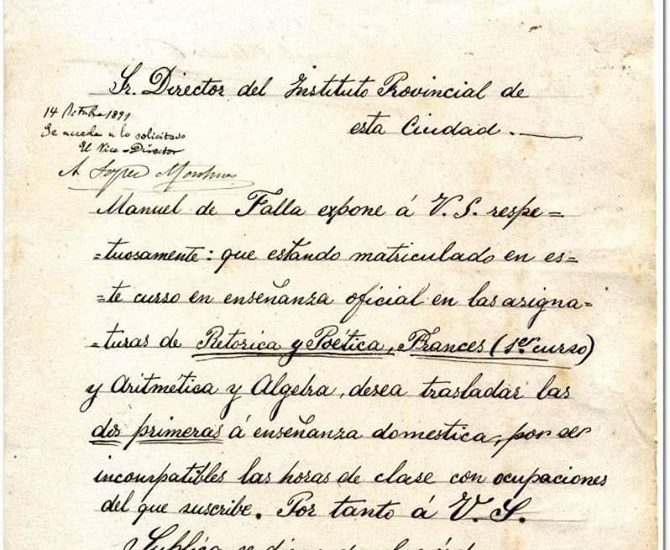 Sr. Director del Instituto Provincial de
esta Ciudad.
14 Octubre 1891
Se accede á lo solicitado
El Vice-Director
A
Manuel de Falla expone á V. S. respe=
=tuosamente: que estando matriculado en es=
=te curso en enseñanza oficial en las asigna=
=turas de Retorica y Poética, Frances (1er curso)
y Aritmética y Algebra, desea trasladar las
dos primeras á enseñanza domestica, por ser
incompatibles las horas de clase con ocupaciones
del que suscribe. Por tanto á V. S.
Suplica se